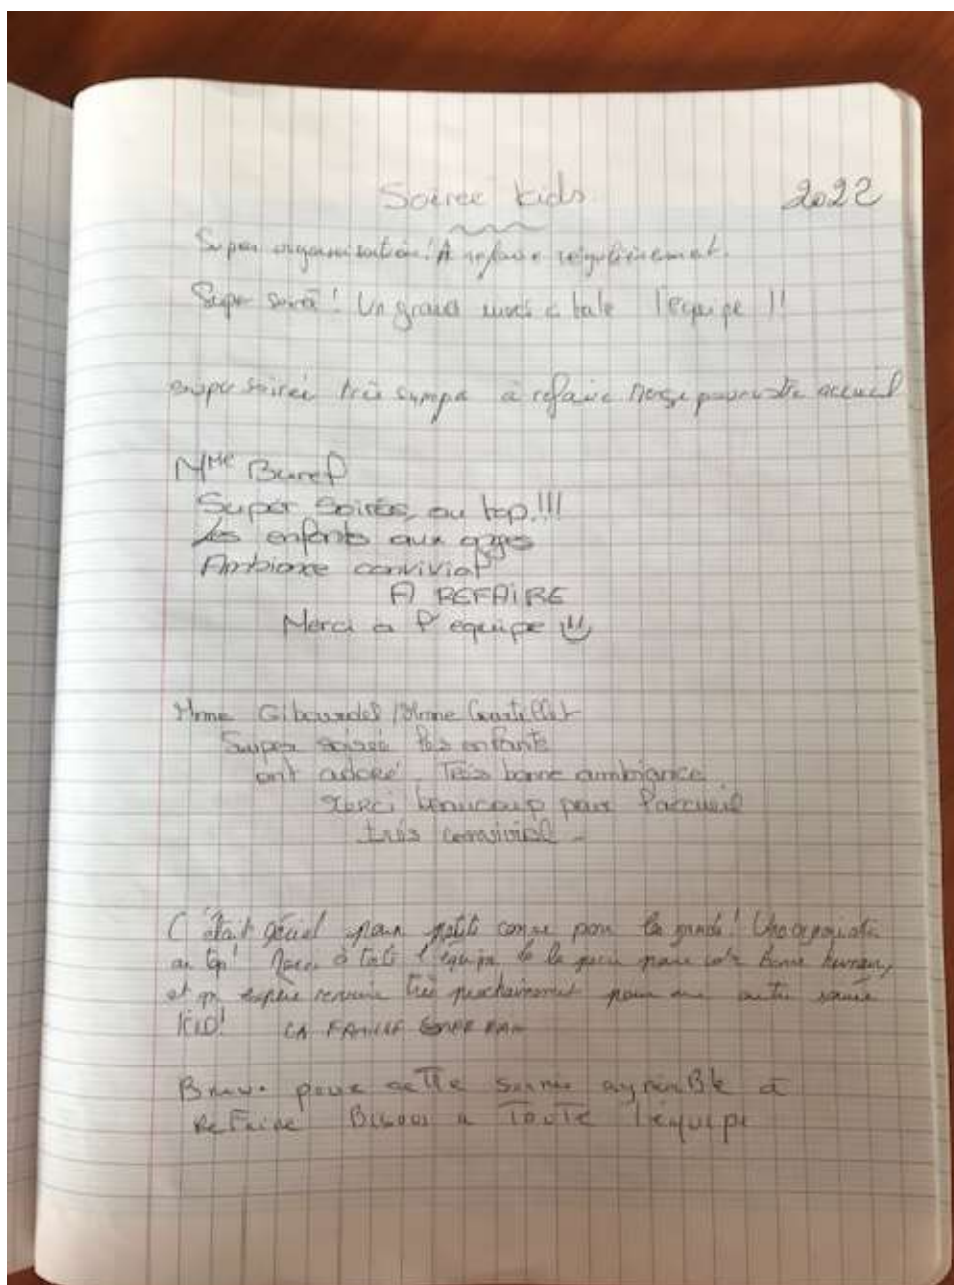 Soirée kids 2022
Super organisation! A refaire régulièrement.
Super soirée! Un grand merci à toute l'équipe !!
super soirée très sympa à refaire Merci pour votre accueil
Mme Buref
Super soirée, au top!!!
Les enfants aux anges
Ambiance convivial
A REFAIRE
Merci a l'equipe
Mme Gibourdel / Mme
Super soirée les enfants
ont adoré. Très bonne ambiance
Merci beaucoup pour l'accueil
très convivial -
C'était génial pour petits comme pour la grande! Une organisation
au top! Merci à toute l'équipe de la pour votre bonne humeur,
et on espère revenir très prochainement pour une autre soirée
KID! LA FAMILLE
Bravo pour cette soirée agréable à
Refaire Bisous a Toute l'équipe